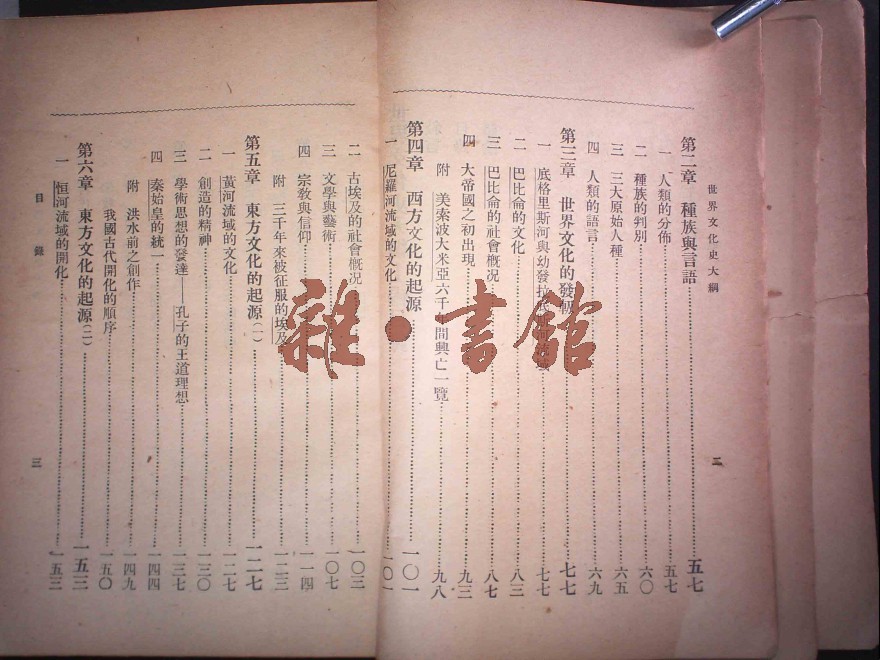 世界文化史大綱
第二章 種族與言語……五七
一 人類的分佈……五七
二 種族的判別……六〇
三 三大原始人種……六五
四 人類的語言……六九
第三章 世界文化的發軔……七七
一 底格里斯河與幼發拉底……七七
二 巴比侖的文化……八三
三 巴比侖的社會概況……八七
四 大帝國之初出現……九三
附 美索波大米亞六千年間興亡一覽……九八
第四章 西方文化的起源……一〇一
一 尼羅河流域的文化……一〇一
二
二 古埃及的社會概況……一〇三
三 文學與藝術……一〇七
四 宗教與信仰……一一四
附 三千年來被征服的埃及……一二三
第五章 東方文化的起源(一)……一二七
一 黃河流域的文化……一二七
二 創造的精神……一三〇
三 學術思想的發達——孔子的王道理想……一三七
四 秦始皇的統一……一四四
附 洪水前之創作……一四九
我國古代開化的順序……一五〇
第六章 東方文化的起源(二)……一五三
一 恒河流域的開化……一五三
目錄
三
雜·書館